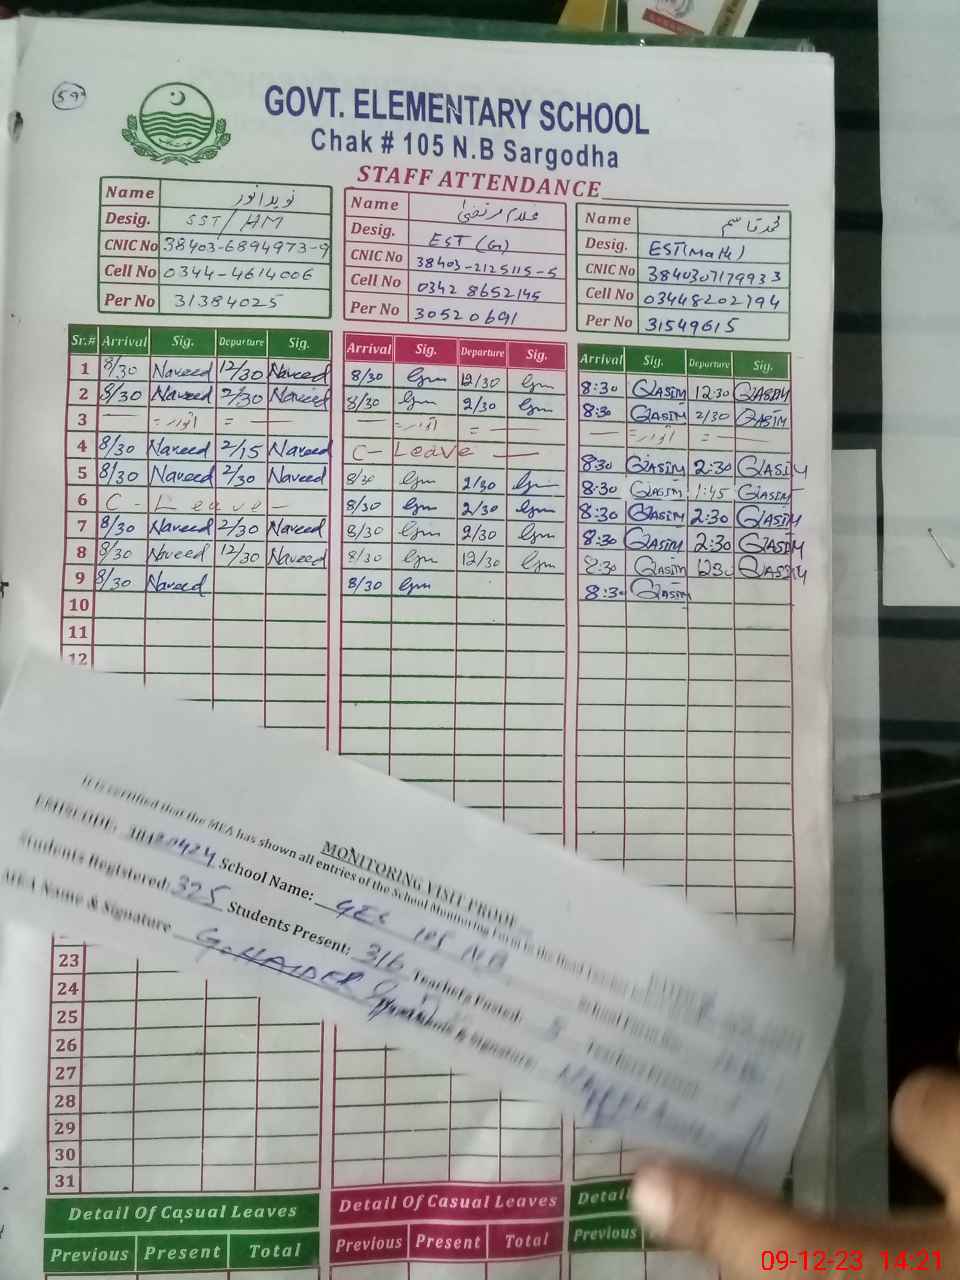 59
GOVT. ELEMENTARY SCHOOL
Chak # 105 N.B Sargodha
STAFF ATTENDANCE
Name نویدانور
Desig. SST/HM
CNIC No 38403-6894973-9
Cell No 0344-4614006
Per No 31384025
Name غلام مرتضیٰ
Desig. EST (G)
CNIC No 38403-2125115-5
Cell No 0342 8652145
Per No 30520691
Name محمد قاسم
Desig. EST(Math)
CNIC No 3840307179933
Cell No 03448202794
Per No 31549615
Sr.# Arrival Sig. Departure Sig. Arrival Sig. Departure Sig. Arrival Sig. Departure Sig.
1 8/30 Naveed 12/30 Naveed 8/30 12/30 8:30 QASIM 12:30 QASIM
2 8/30 Naveed 2/30 Naveed 8/30 2/30 8:30 QASIM 2/30 QASIM
3 — اتوار = — — اتوار = — — اتوار = —
4 8/30 Naveed 2/15 Naveed C-Leave — 8:30 QASIM 2:30 QASIM
5 8/30 Naveed 2/30 Naveed 8/30 2/30 8:30 QASIM 1:45 QASIM
6 C-Leave- 8/30 2/30 8:30 QASIM 2:30 QASIM
7 8/30 Naveed 2/30 Naveed 8/30 2/30 8:30 QASIM 2:30 QASIM
8 8/30 Naveed 12/30 Naveed 8/30 12/30 8:30 QASIM 1230 QASIM
9 8/30 Naveed 8/30 8:30 QASIM
10
11
12
MONITORING VISIT PROOF
It is certified that the MEA has shown all entries of the School Monitoring Form to the Head
EMISCODE: 38420424 School Name: GES 105 NB School Form No:
Students Registered: 325 Students Present: 316 Teachers Posted: Teachers Present
MEA Name & Signature G.HAIDER & Signature
23
24
25
26
27
28
29
30
31
Detail Of Casual Leaves Detail Of Casual Leaves Detail
Previous Present Total Previous Present Total Previous
09-12-23 14:21